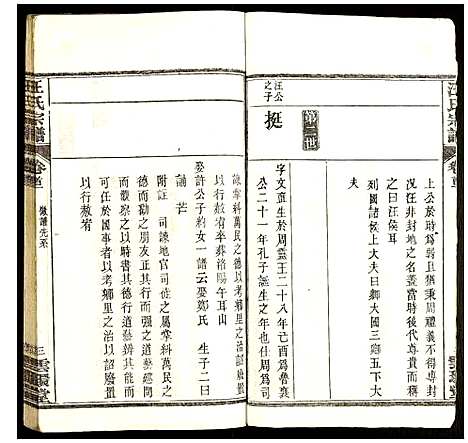 汪氏宗譜
卷首
雲
上公於時為弱且猶秉周禮義不
汪任非封地之名蓋當時後代尊貴而稱
之曰汪侯耳
列國諸侯上大夫曰卿大國三卿五下大
夫
第二世
汪公之子
挺
字文直生於周靈王二十八年己酉為魯襄
公二十一年孔子誕生之年也仕周為司
諫掌科萬民之德以考鄉里之治以詔廢置
以行赦宥年葬洛陽午耳山
娶許公子約女一譜云娶鄭氏 生子二曰
誦 芒
附註 司諫地官司徒之屬掌糾萬民之
德而勸之朋友正其行而强之道藝巡問
而觀察之以時書其德行道藝辨其能而
可任於國事者以考鄉里之治以詔廢置
以行赦宥
汪氏宗譜
卷首
徽譜先系
三
雲環堂